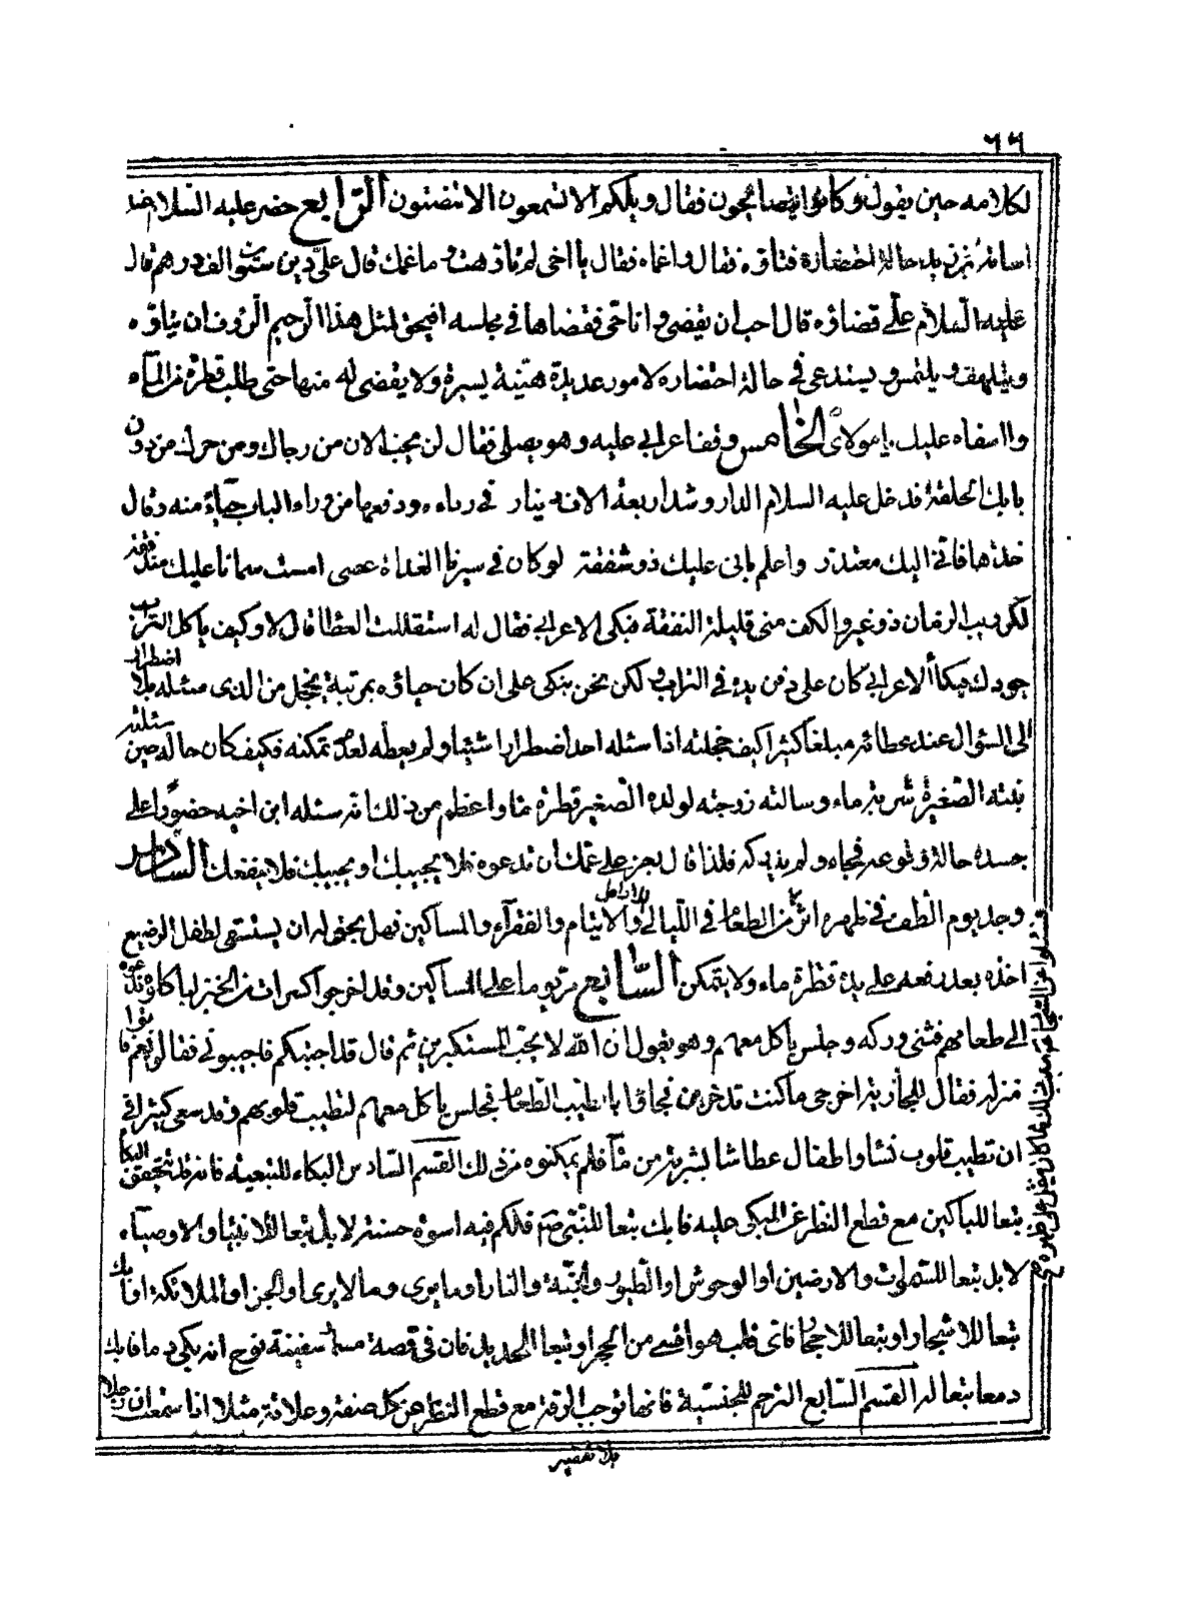 ٦٦
لكلامه حين يقول وكانوا يتصايحون فقال ويلكم الا تسمعون الا تنصتون الرابع حضر عليه السلام عند
اسامة بن زيد حالة احتضاره فتاوه فقال واغماه فقال يا اخى لم تاوهت وما غمك قال علىّ دين ستون الف درهم قال
عليه السلام علىّ قضاؤه قال احب ان يقضى وانا حى فقضاها فى مجلسه افيحق لمثل هذا الرحيم الرؤف ان يتاوه
ويتلهف ويلتمس ويستدعى فى حالة احتضاره لامور عديدة هينة يسيرة ولا يقضى له منها حتى طلب قطرة من الماء
وااسفاه عليك يا مولاى الخامس وقف اعرابى عليه وهو يصلى فقال لن يخب الان من رجاك ومن حرك من دون
بابك الحلقة فدخل عليه السلام الدار وشد اربعة الاف دينار فى رداءه ودفعها من وراء الباب حياء منه وقال
خذها فانى اليك معتذر واعلم بانى عليك ذو شفقة لو كان فى سيرنا الغداة عصى امست سمانا عليك مندفقة
لكن ريب الزمان ذو غير والكف منى قليلة النفقة فبكى الاعرابى فقال له استقللت العطا قال لا وكيف ياكل التراب
جودك فبكاء الاعرابى كان على دفن يده فى التراب ولكن نحن نبكى على ان كان حياؤه بمرتبة يخجل من الذى مسئله بلا اضطرار
الى السؤال عند عطائه مبلغا كثيرا كيف خجلته اذا سئله احد اضطرارا شيئا ولم يعطه لعدم تمكنه فكيف كان حاله حين سئلته
بنته الصغيرة شربة ماء وسالته زوجته لولده الصغير قطرة ماء واعظم من ذلك انه سئله ابن اخيه حضوره على
جسده حالة وقوعه فجاء ولم يدركه فلذا قال يعز على عمك ان تدعوه فلا يجيبك او يجيبك فلا ينفعك السادس
وجد يوم الطف فى ظهره اثر من الطعام فى الليالى للارامل والايتام والفقراء والمساكين فهل يحق له ان يستسقى لطفل الرضيع
اخذه بعد رفعه على يده قطرة ماء ولا يتمكن السابع مر يوما على المساكين وقد اخرجوا كسرات من الخبز لياكلوه فدعوه
الى طعامهم فثنى وركه وجلس ياكل معهم وهو يقول ان الله لا يحب المستكبرين ثم قال قد اجبتكم فاجيبونى فقالوا نعم فاتوا
منزله فقال للجارية اخرجى ما كنت تدخرين فجاؤا باطيب الطعام فجلس ياكل معهم لتطييب قلوبهم وقد سعى كثيرا فى
ان تطيب قلوب نساء واطفال عطاشا بشربة من ماء فلم يمكنوه من ذلك القسم السادس البكاء للتبعية فانه قد يتحقق البكاء
تبعا للباكين مع قطع النظر عن المبكى عليه فابك تبعا للنبى صم فلكم فيه اسوة حسنة لا بل تبعا للانبياء والاوصياء
لا بل تبعا للسموات والارضين او الوحوش او الطيور والجنة والنار او ما يرى وما لا يرى او الجن او الملائكة او ابك
تبعا للاشجار او تبعا للاحجار فاى قلب هو اقسى من الحجر او تبعا للحديد فان فى قصة مسمار سفينة نوح انه بكى دما فابك
دمعا تبعا له القسم السابع الترحم للجنسية فانها توجب الرقة مع قطع النظر عن كل صفة وعلاقة مثلا اذا سمعت ان رجلا
بلا تقصير